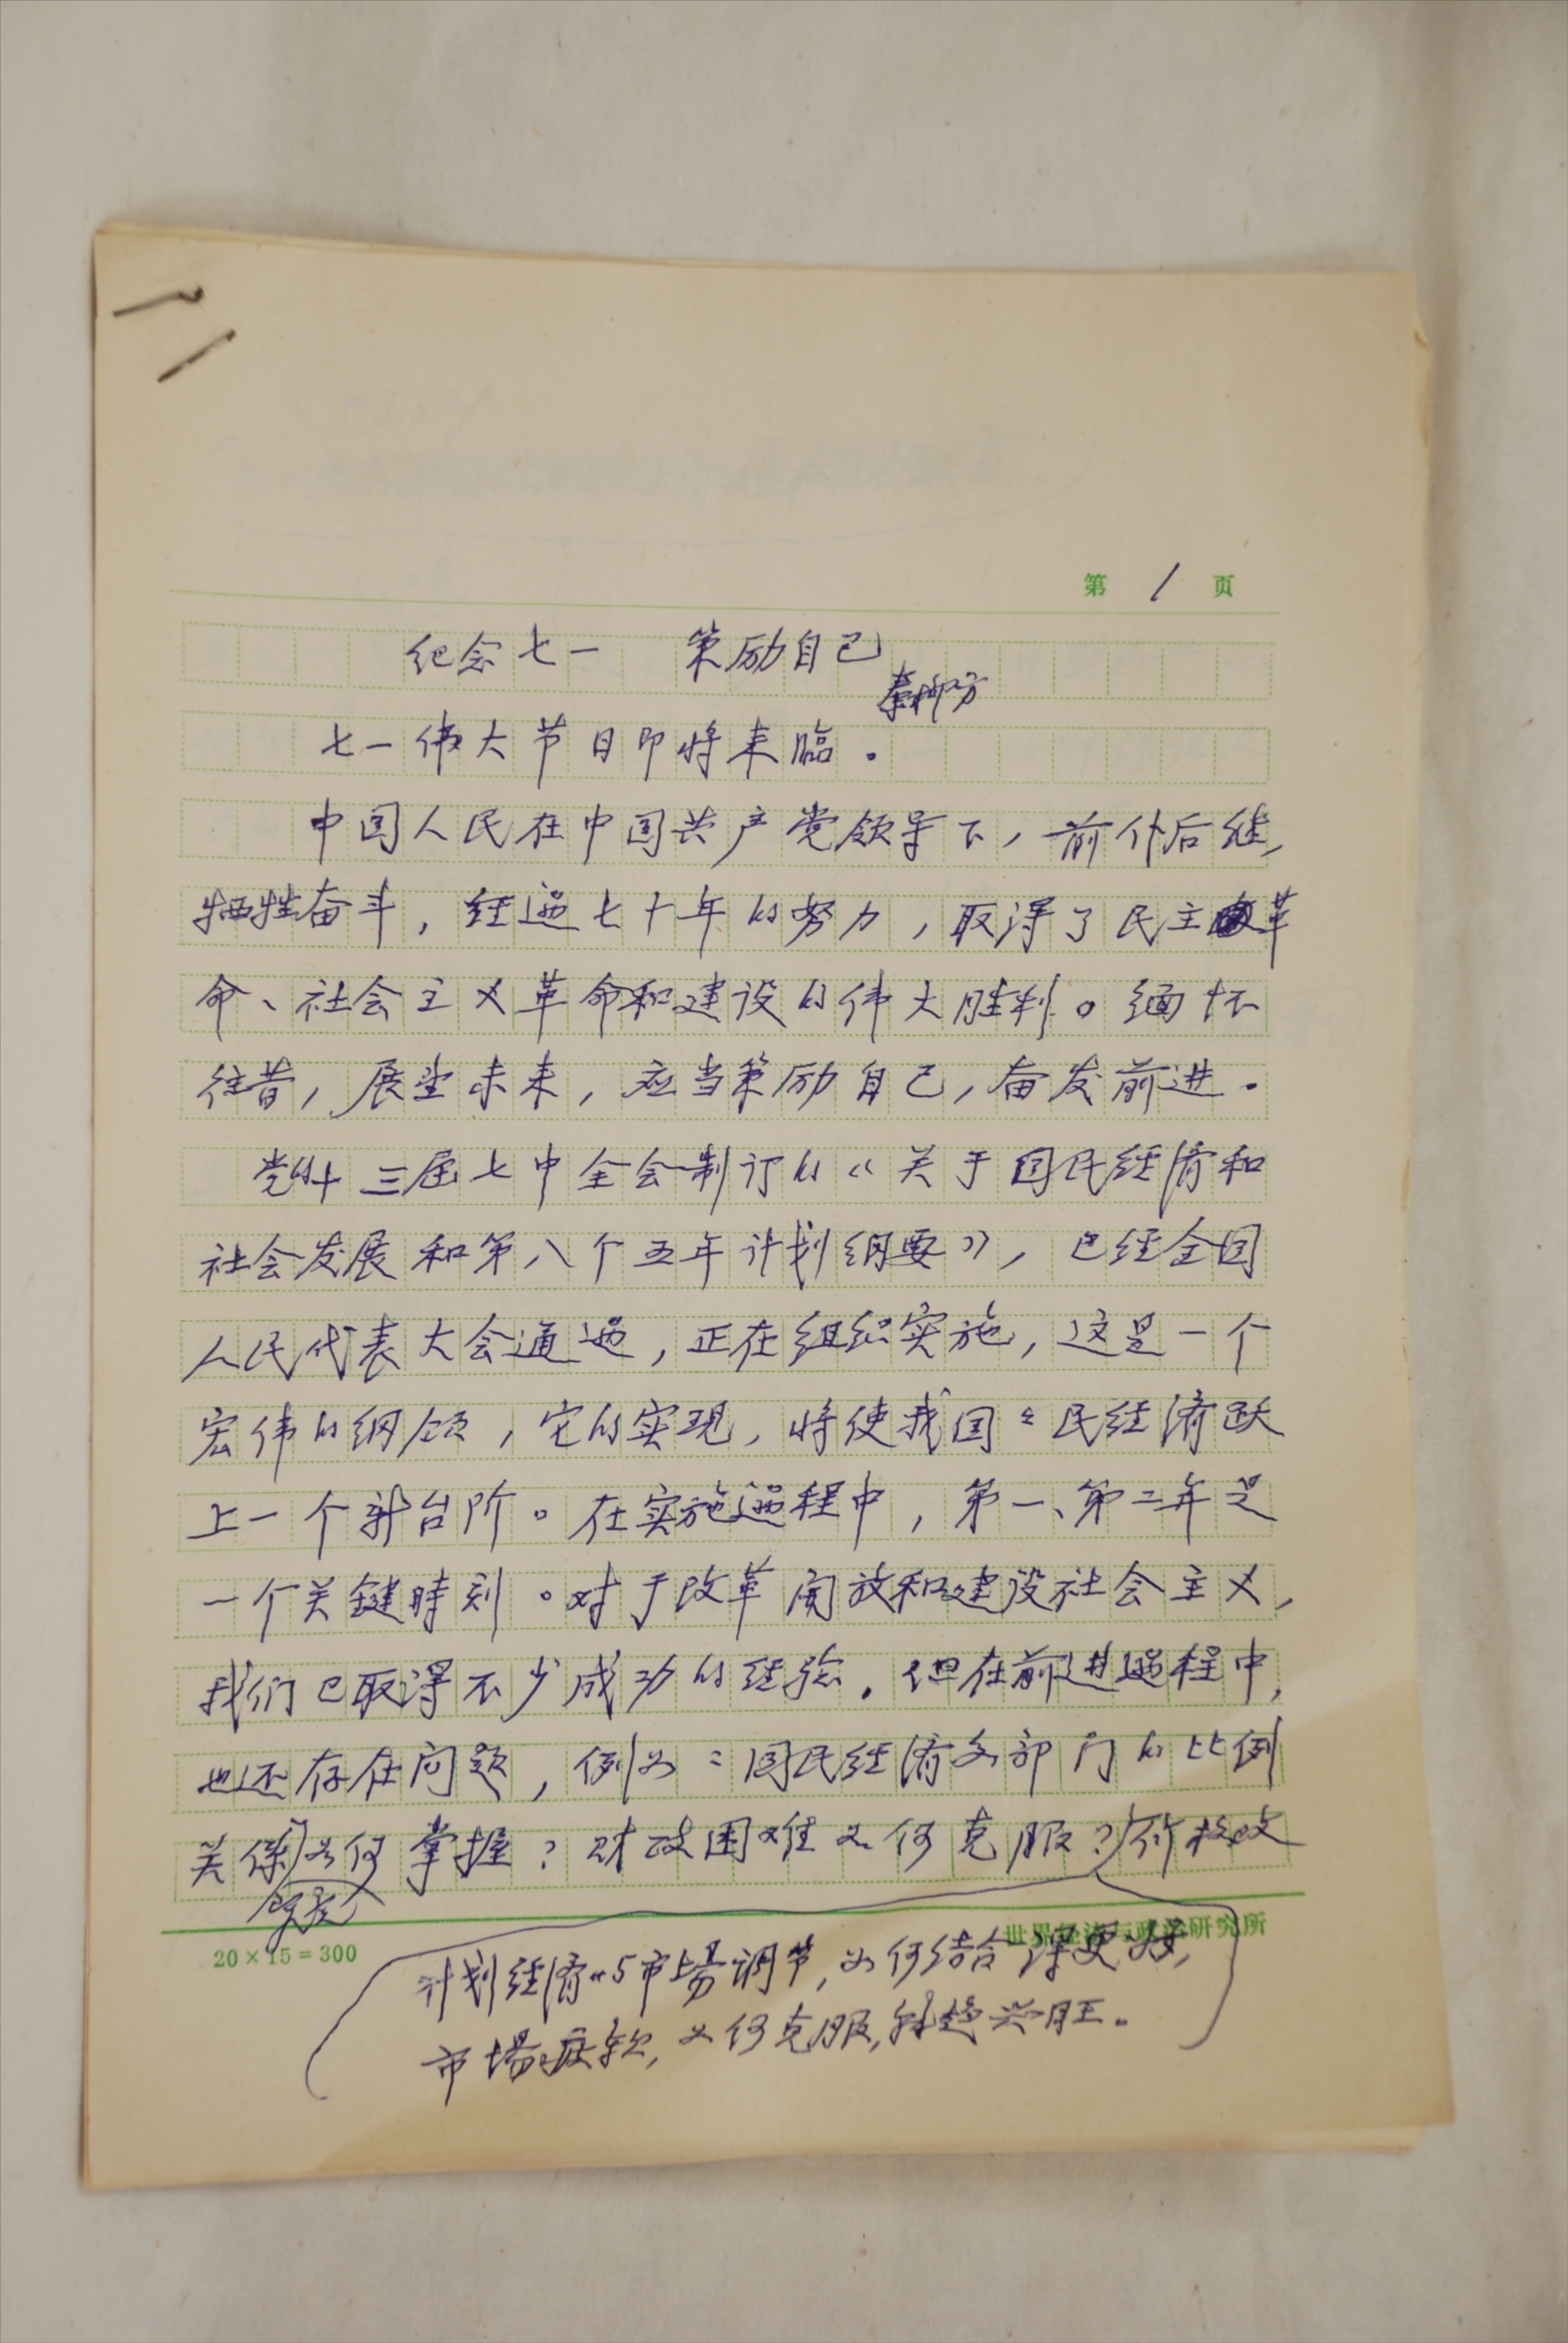 第 1 页
纪念七一 策励自己
秦柳方
七一伟大节日即将来临。
中国人民在中国共产党领导下，前仆后继，
牺牲奋斗，经过七十年的努力，取得了民主革
命、社会主义革命和建设的伟大胜利。缅怀
往昔，展望未来，应当策励自己，奋发前进。
党的十三届七中全会制订的《关于国民经济和
社会发展和第八个五年计划纲要》，已经全国
人民代表大会通过，正在组织实施，这是一个
宏伟的纲领，它的实现，将使我国民经济跃
上一个新台阶。在实施过程中，第一、第二年是
一个关键時刻。对于改革开放和建设社会主义，
我们已取得不少成功的经验。但在前进过程中，
也还存在问题，例如：国民经济各部门的比例
关系如何掌握？财政困难如何克服？价格改
20×15=300
世界经济与政治研究所
计划经济与市场调节，如何结合得更好，
市場疲软，如何克服，走兴旺。